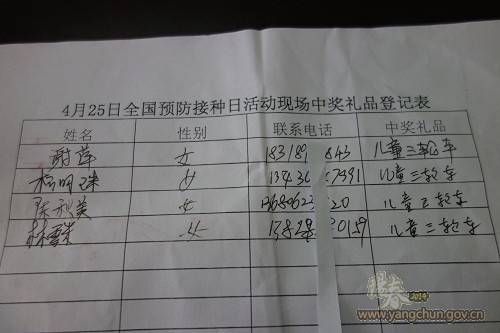 4月25日全国预防接种日活动现场中奖礼品登记表
姓名 性别 联系电话 中奖礼品
谢萍 女 183189 843 儿童三轮车
杨明珠 女 13436 7391 儿童三轮车
陈秋美 女 1368062 20 儿童三轮车
林 女 13828 0159 儿童三轮车
2014
www.yangchun.gov.cn